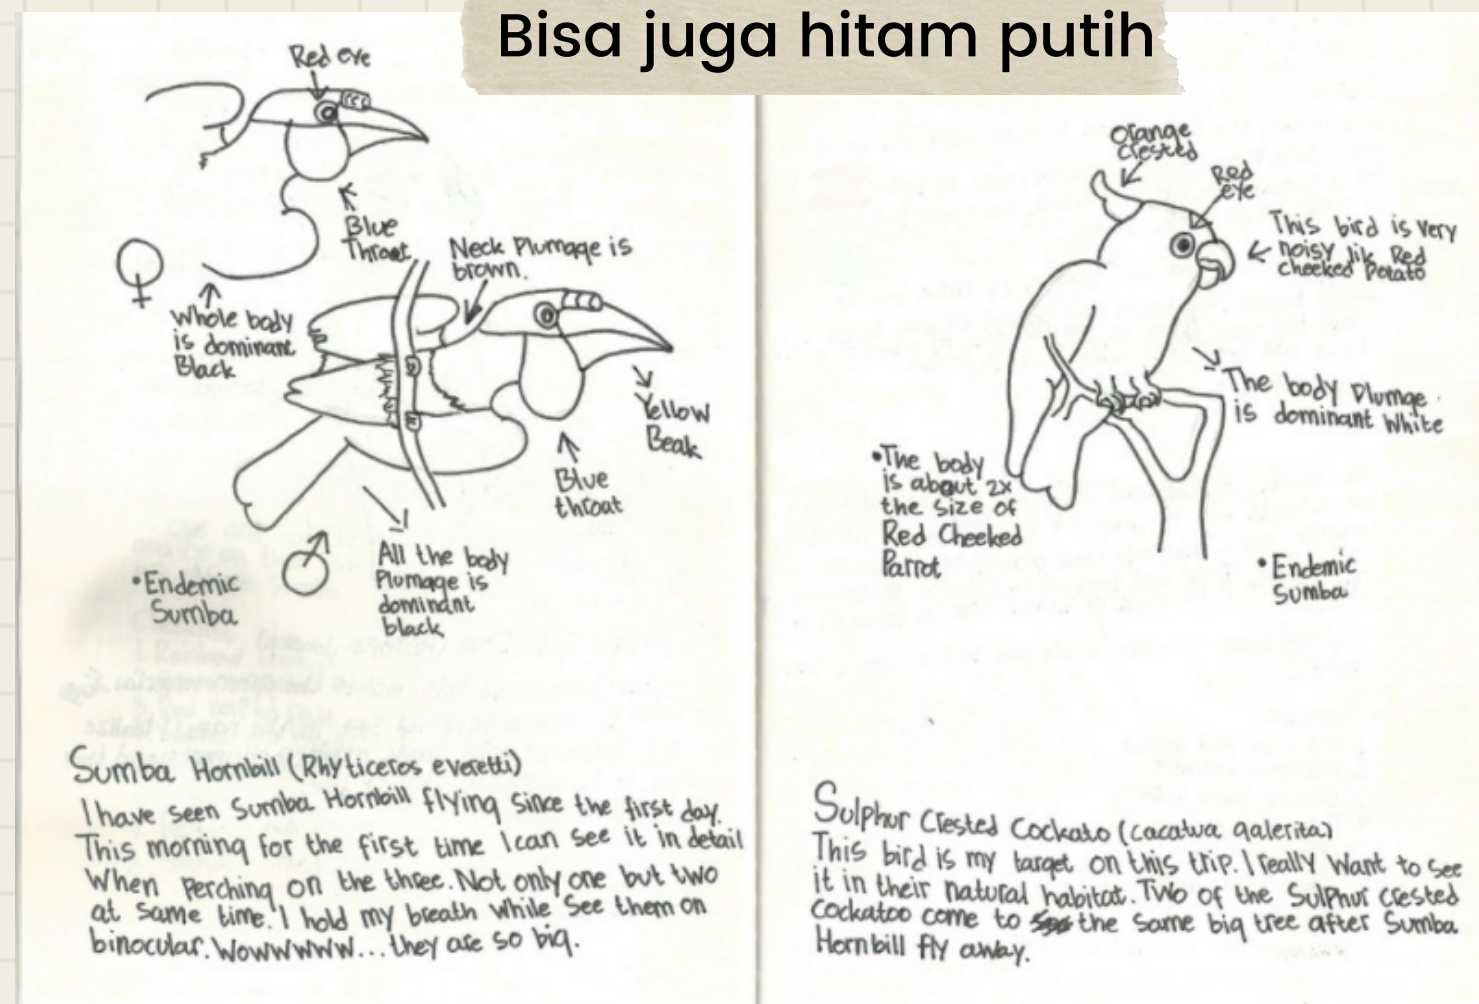 Bisa juga hitam putih
Red eye
Blue
Throat
Neck Plumage is
brown.
Whole body
is dominant
Black
Yellow
Beak
Blue
throat
All the body
Plumage is
dominant
black
•Endemic
Sumba
Sumba Hornbill (Rhyticeros everetti)
I have seen Sumba Hornbill flying since the first day.
This morning for the first time I can see it in detail
When Perching on the three. Not only one but two
at same time. I hold my breath while see them on
binocular. Wowwwww... they are so big.
Orange
crested
Red
eye
This bird is very
noisy lik Red
cheeked Potato
The body Plumge
is dominant White
•The body
is about 2x
the size of
Red Cheeked
Parrot
•Endemic
Sumba
Sulphur Crested Cockato (cacatua galerita)
This bird is my target on this trip. I really Want to see
it in their natural habitat. Two of the Sulphur crested
Cockatoo come to the same big tree after Sumba
Hornbill fly away.